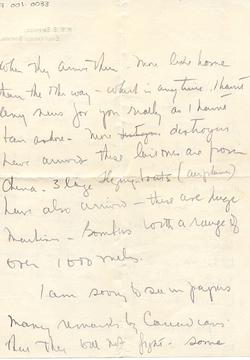 001.0033
when they arrive there - more like home
than the other way - what is anyway. I haven't
any news for you really as I haven't
been ashore - more destroyers
have arrived these last ones are from
China - 3 large flying-boats (airplanes)
have also arrived - these are huge
machines - Bombers with a range of
over 1000 miles.
I am sorry to see in papers
many remarks by Canadians
that they will not fight - some